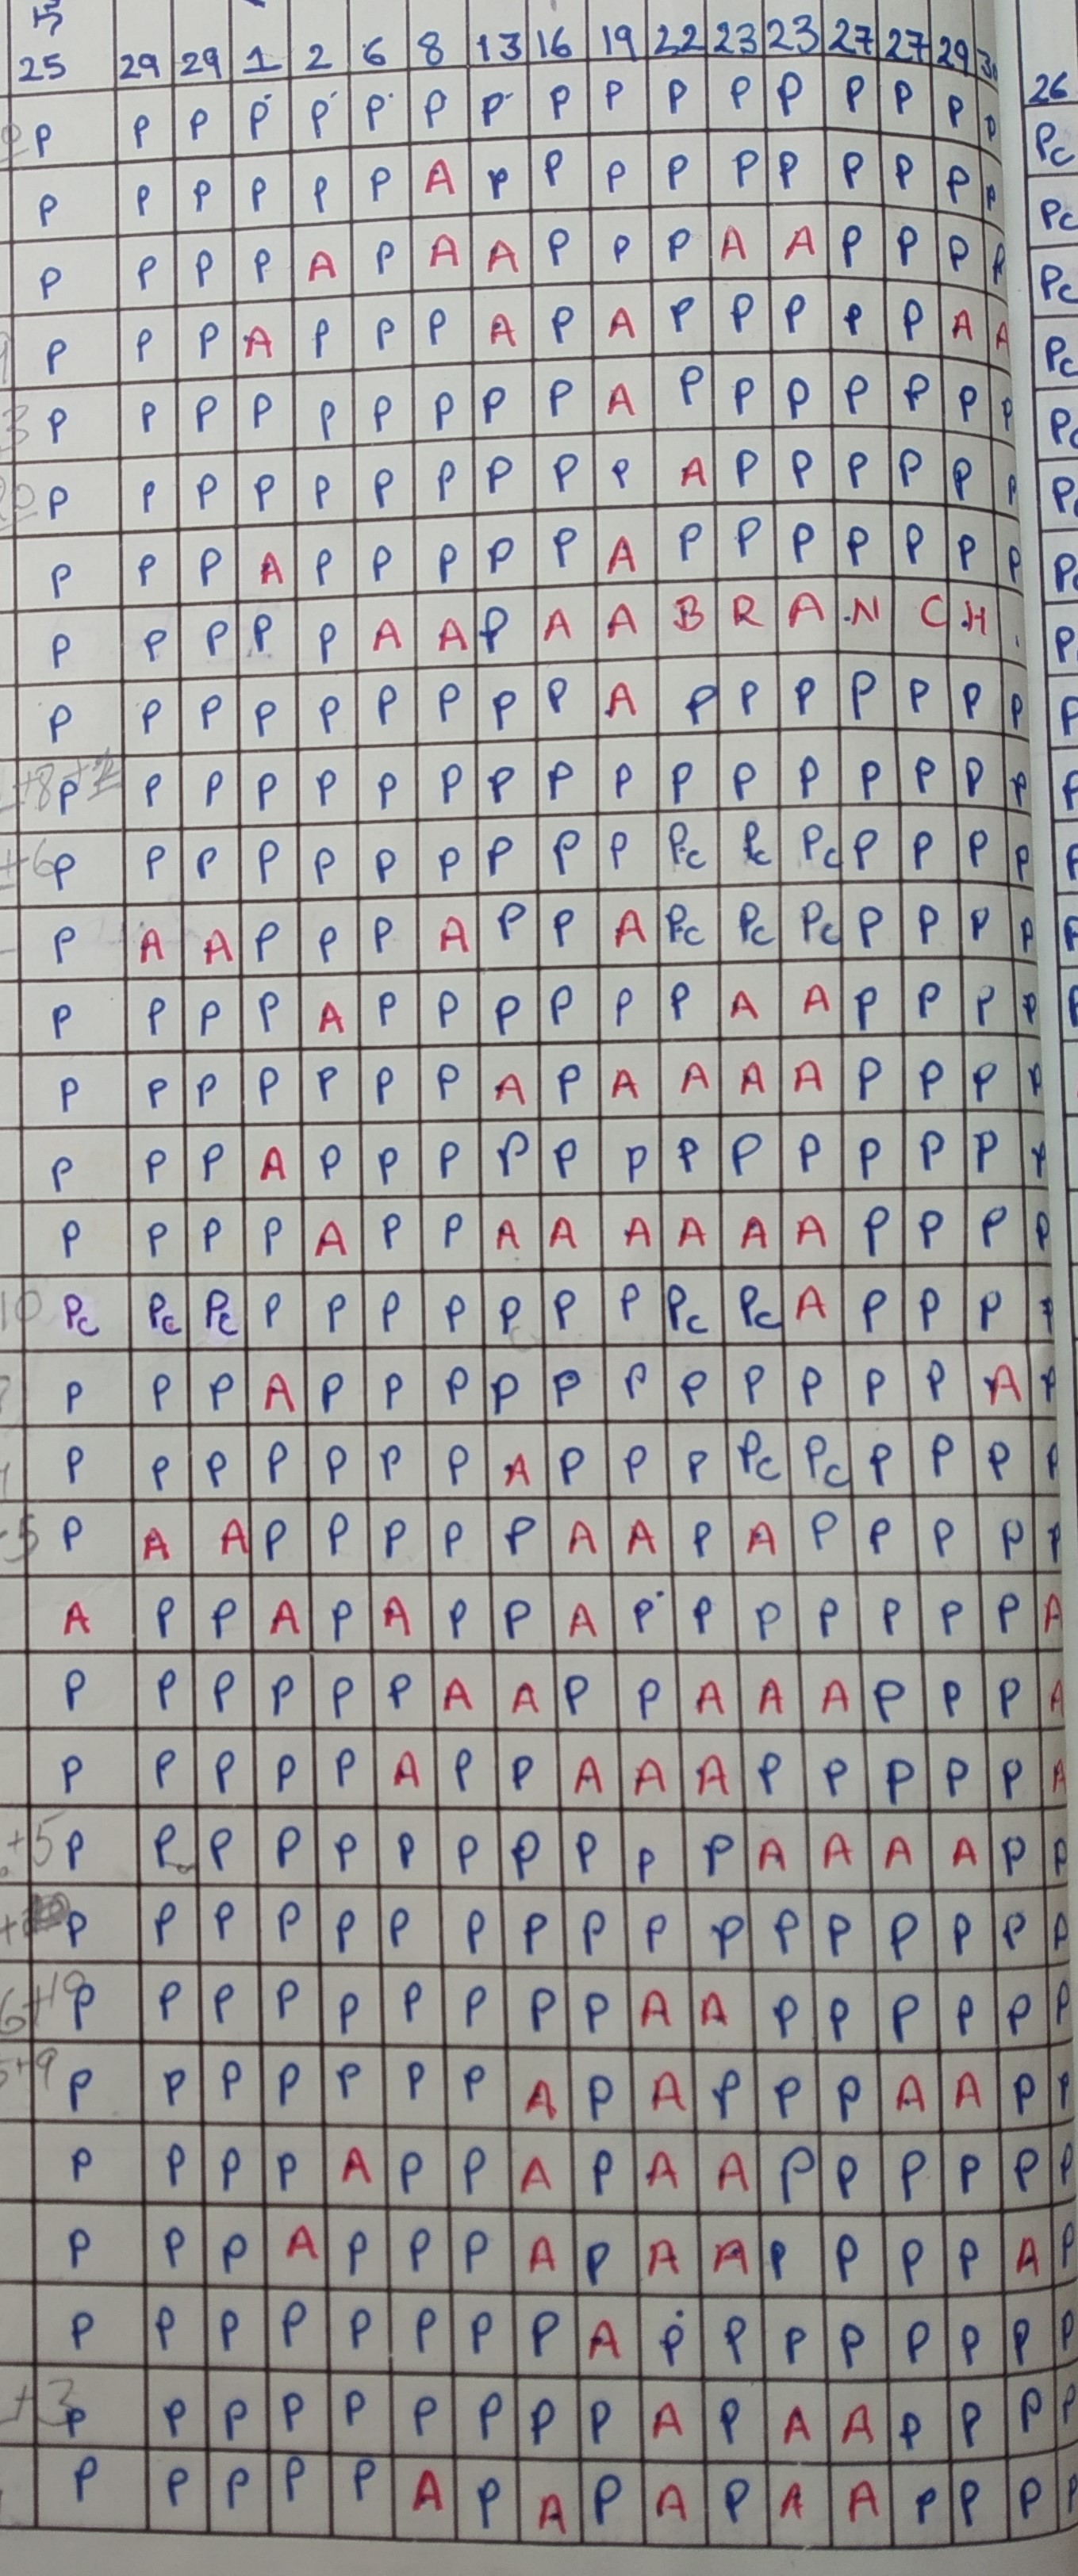 25 29 29 1 2 6 8 13 16 19 22 23 23 27 27 29 30 26
P P P P P P P P P P P P P P P P P Pc
P P P P P P A P P P P P P P P P P Pc
P P P P A P A A P P P A A P P P P Pc
P P P A P P P A P A P P P P P A A Pc
P P P P P P P P P A P P P P P P P
P P P P P P P P P P A P P P P P P
P P P A P P P P P A P P P P P P P
P P P P P A A P A A B R A N C H
P P P P P P P P P A P P P P P P P
P P P P P P P P P P P P P P P P P
+6 P P P P P P P P P P Pc Pc Pc P P P P
P A A P P P A P P A Pc Pc Pc P P P P
P P P P A P P P P P P A A P P P P
P P P P P P P A P A A A A P P P P
P P P A P P P P P P P P P P P P P
P P P P A P P A A A A A A P P P P
10 Pc Pc Pc P P P P P P P Pc Pc A P P P P
P P P A P P P P P P P P P P P A P
P P P P P P P A P P P Pc Pc P P P P
P A A P P P P P A A P A P P P P P
A P P A P A P P A P P P P P P P A
P P P P P P A A P P A A A P P P A
P P P P P A P P A A A P P P P P A
+5 P P P P P P P P P P P A A A A P P
P P P P P P P P P P P P P P P P P
P P P P P P P P P A A P P P P P P
+9 P P P P P P P A P A P P P A A P P
P P P P A P P A P A A P P P P P P
P P P A P P P A P A A P P P P A P
P P P P P P P P A P P P P P P P P
+3 P P P P P P P P P A P A A P P P P
P P P P P A P A P A P A A P P P P